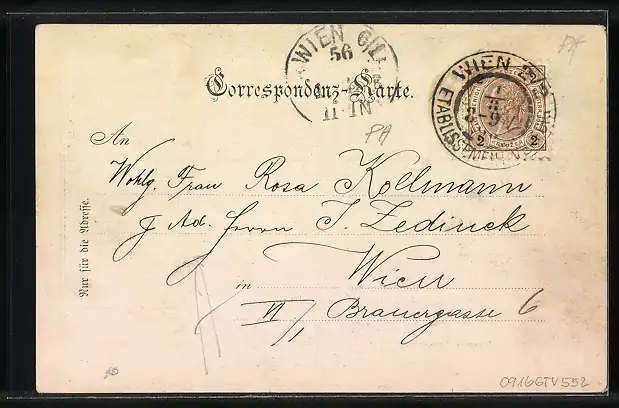 WIEN 6/1
56
11·IN
WIEN 2/2
ETABLISSEMENT
8-9
2 KREUZER 2
Correspondenz-Karte.
PA
PA
An
Wohlg. Frau Rosa Kollmann
p. Ad. Herrn J. Zedinek
in Wien
VI/1 Brauergasse 6
Nur für die Adresse.
0916GTV552